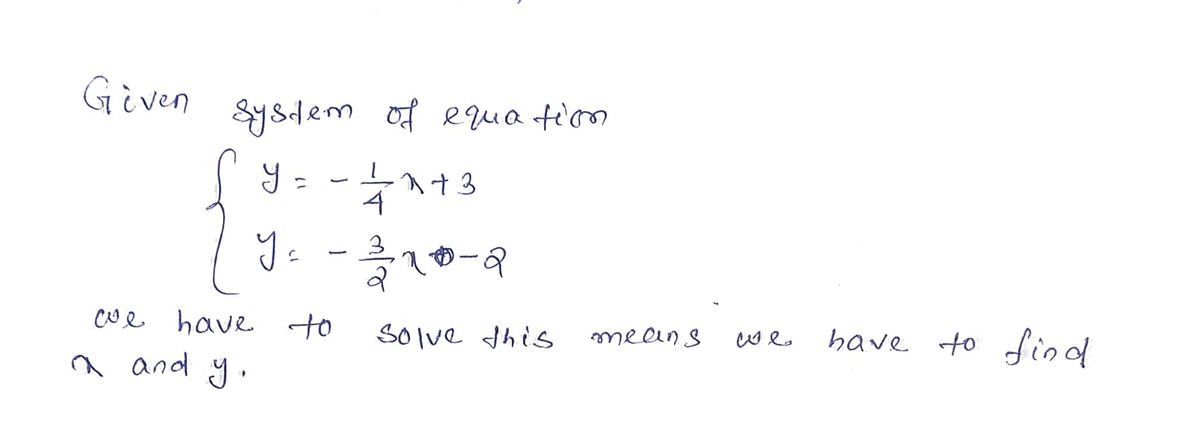 Given system of equation
y = - 1/4 x + 3
y = - 3/2 x - 2
we have to solve this means we have to find
x and y.